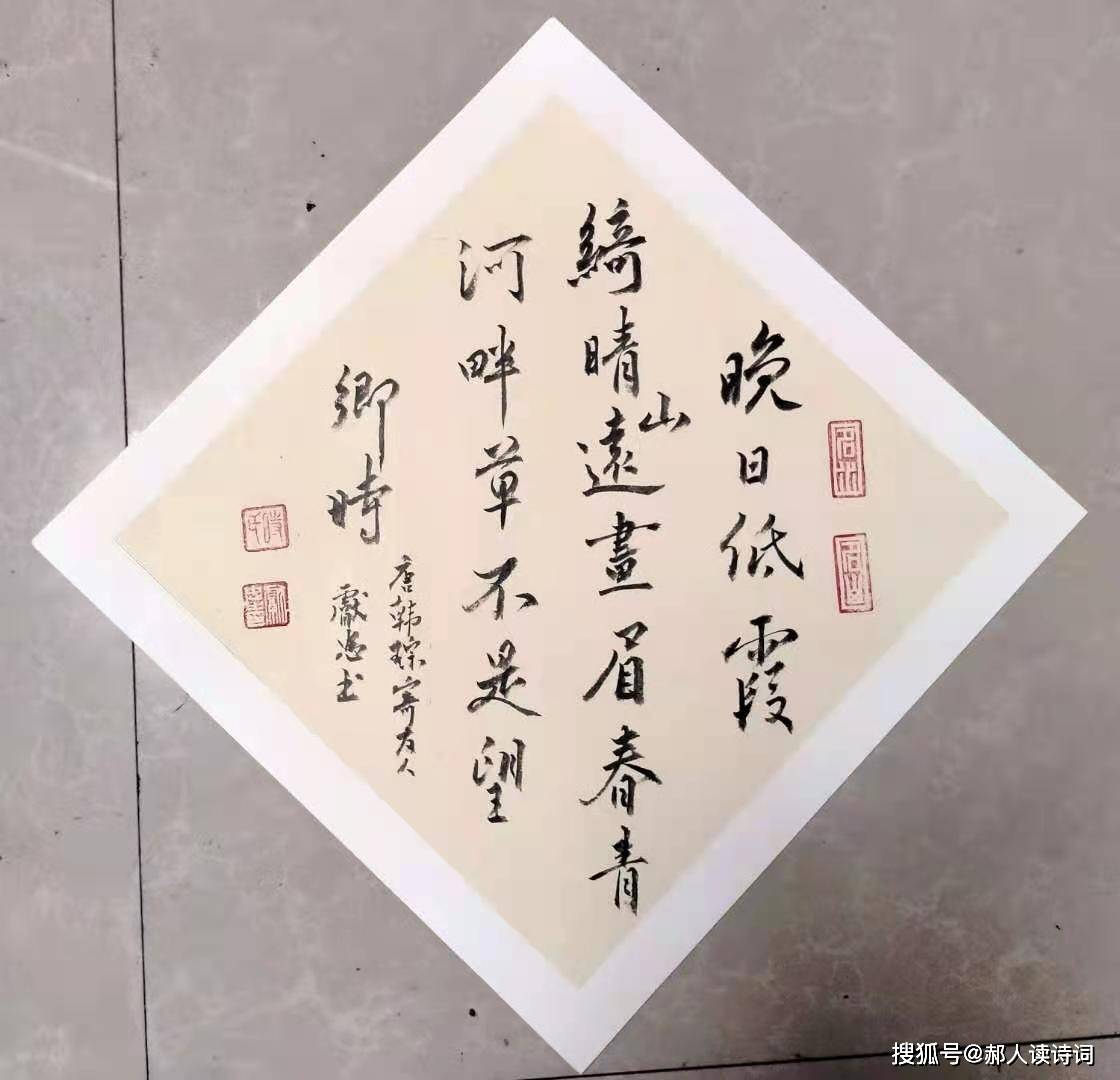 晚日低霞
綺晴山遠畫眉春青
河畔草不是望
鄉時
唐韩琮寄友人
书
搜狐号@郝人读诗词